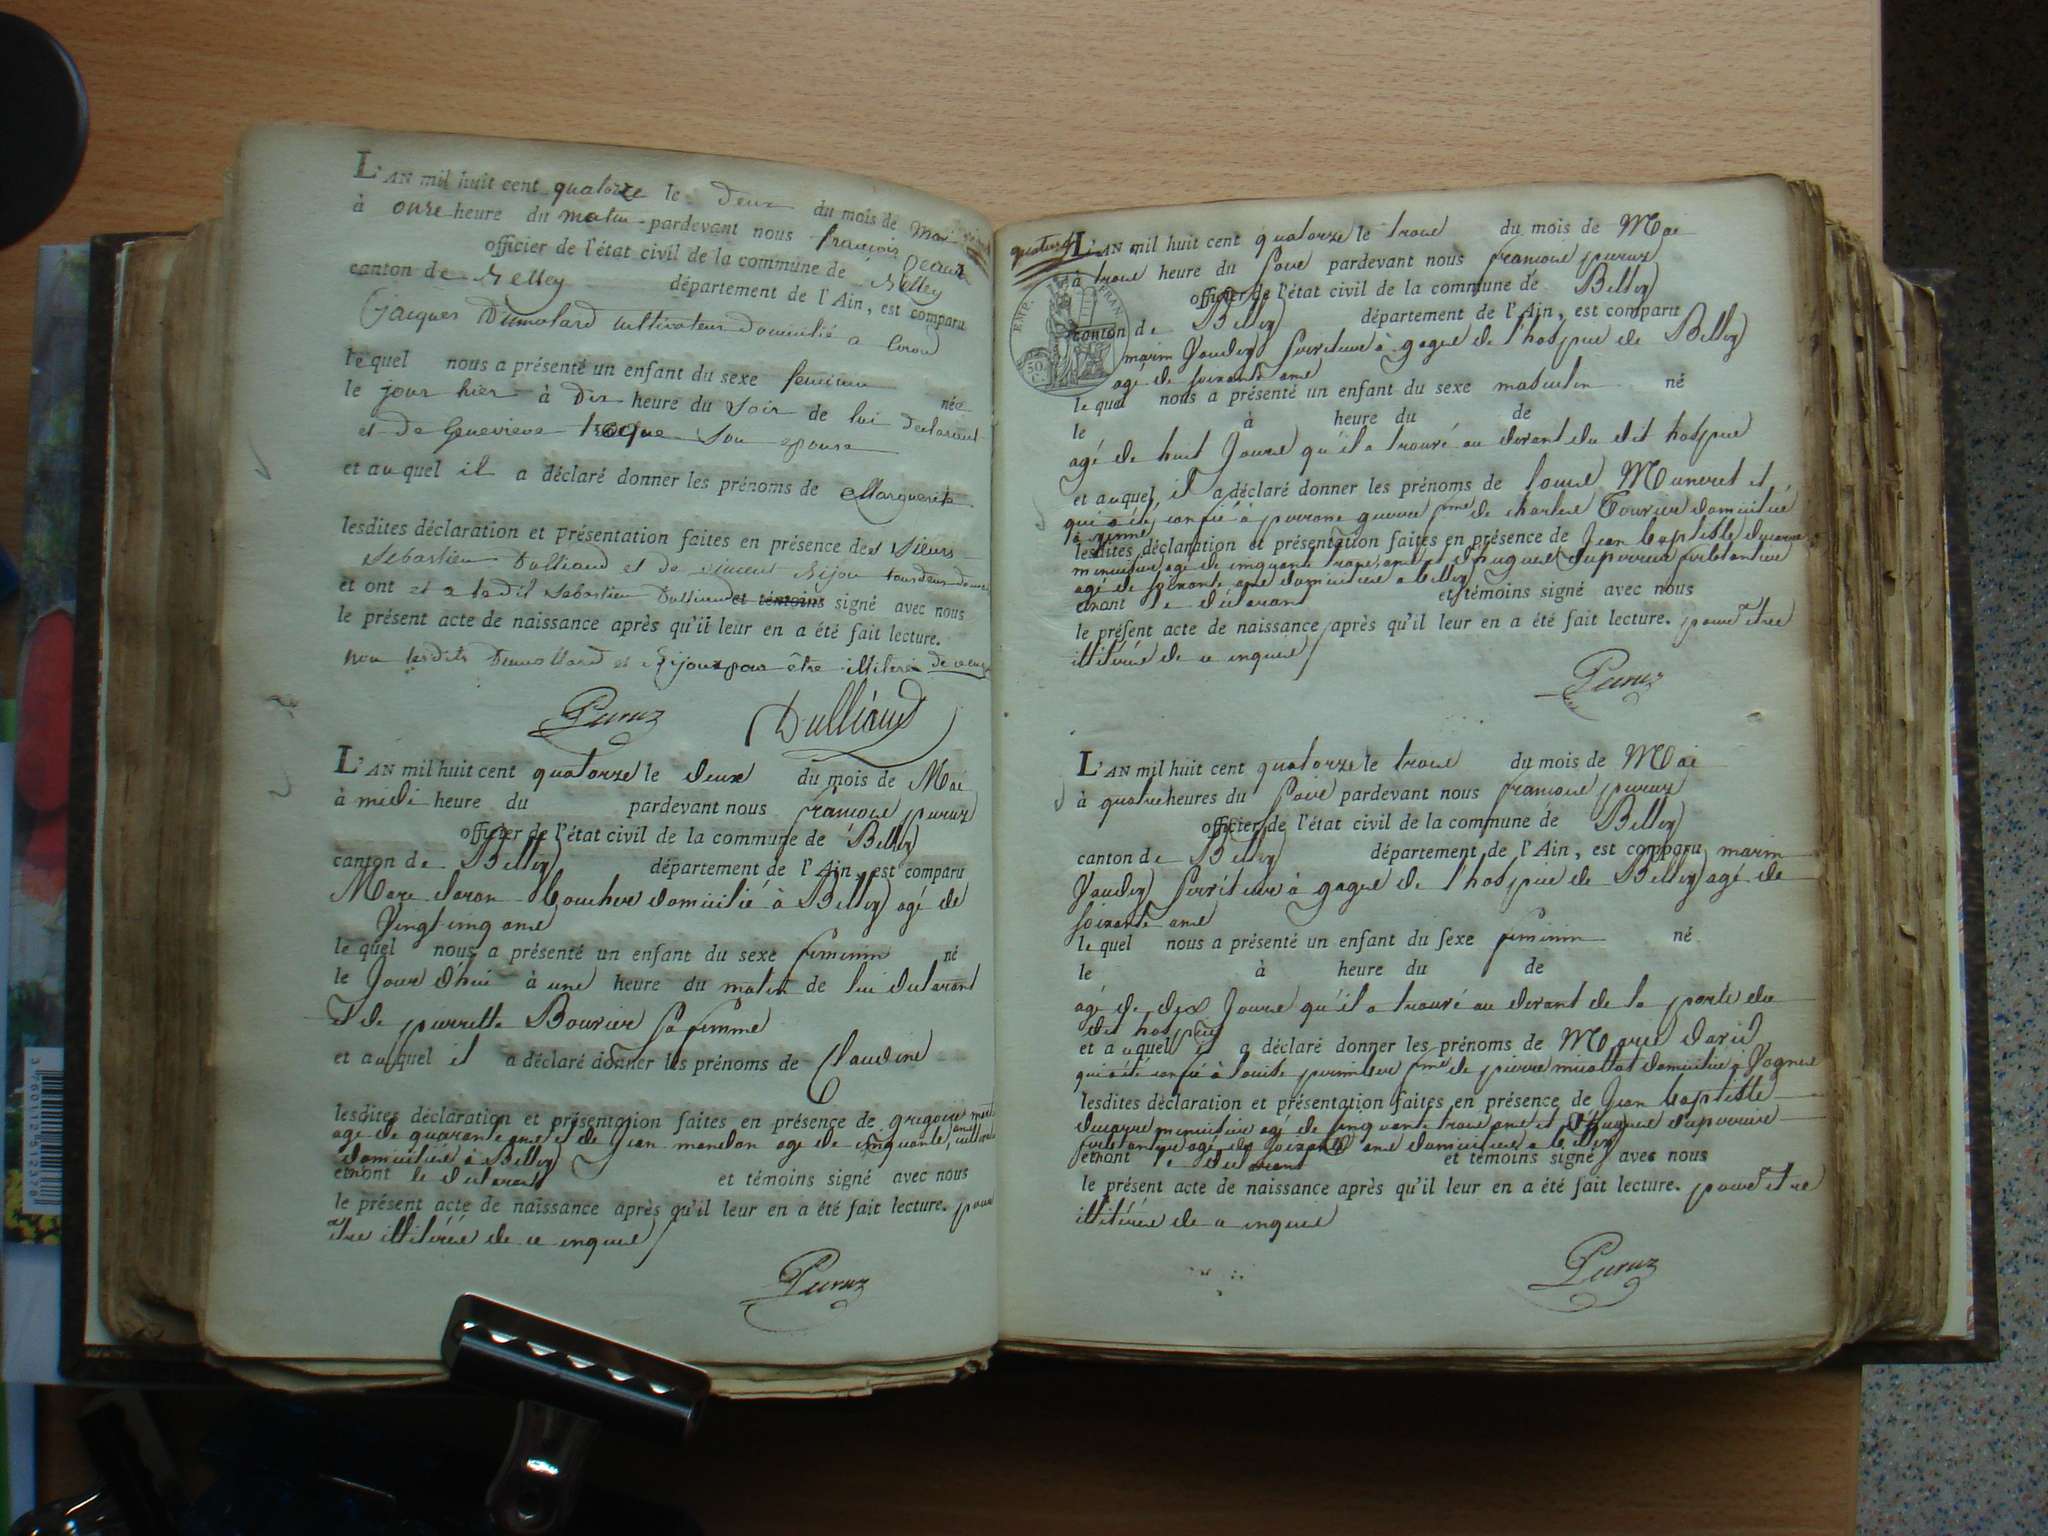 L'AN mil huit cent quatorze le deux du mois de Mai
à onze heure du matin pardevant nous françois
officier de l'état civil de la commune de Belley
canton de Belley département de l'Ain, est comparu
Jacques Dumolard cultivateur domicilié a
le quel nous a présenté un enfant du sexe feminin née
le jour hier à dix heure du soir de lui declarant
et de Genevieve son epouse
et auquel il a déclaré donner les prénoms de Marguerite
lesdites déclaration et présentation faites en présence des Sieurs
Sebastien Dulliaud et de vincent Bijou tous deux
et ont et a ledit Sebastien Dulliaud et témoins signé avec nous
le présent acte de naissance après qu'il leur en a été fait lecture.
non lesdits Dumollard et Bijoux pour être illiteré de
Peruz Dulliaud
L'AN mil huit cent quatorze le deux du mois de Mai
à midi heure du pardevant nous françois peruz
officier de l'état civil de la commune de Belley
canton de Belley département de l'Ain, est comparu
Marc boucher domicilié à Belley agé de
vingt cinq ans
le quel nous a présenté un enfant du sexe feminin né
le Jour d'hui à une heure du matin de lui declarant
et de pierrette Bouvier sa femme
et auquel il a déclaré donner les prénoms de Claudine
lesdites déclaration et présentation faites en présence de gregoire
agé de quarante ans et de Jean agé de cinquante ans
domiciliés à Belley
et nont le declarant et témoins signé avec nous
le présent acte de naissance après qu'il leur en a été fait lecture. pour
etre illiterés de ce enquis
Peruz
quatorze
L'AN mil huit cent quatorze le trois du mois de Mai
à trois heure du soir pardevant nous françois peruz
officier de l'état civil de la commune de Belley
EMP. FRAN.
50 C.
canton de Belley département de l'Ain, est comparu
marin Vaudey serviteur à gages de l'hospice de Belley
agé de soixante ans
le quel nous a présenté un enfant du sexe masculin né
le à heure du de
agé de huit Jours qu'il a trouvé au devant du dit hospice
et auquel il a déclaré donner les prénoms de louis Muneret et
qui a été confié à perrone fme de charles Tournier domicilié
à
lesdites déclaration et présentation faites en présence de Jean baptiste
menuisier agé de cinquante trois ans et d'hugues
agé de soixante ans domiciliés a belley
et nont le déclarant et témoins signé avec nous
le présent acte de naissance après qu'il leur en a été fait lecture. pour etre
illitérés de ce enquis
Peruz
L'AN mil huit cent quatorze le trois du mois de Mai
à quatre heures du soir pardevant nous françois peruz
officier de l'état civil de la commune de Belley
canton de Belley département de l'Ain, est comparu marin
Vaudey serviteur à gages de l'hospice de Belley agé de
soixante ans
le quel nous a présenté un enfant du sexe feminin né
le à heure du de
agé de dix Jours qu'il a trouvé au devant de la porte du
dit hospice
et auquel il a déclaré donner les prénoms de Marie David
qui a été confié à louise fme de pierre micollat domicilié à Vognes
lesdites déclaration et présentation faites en présence de Jean baptiste
menuisier agé de cinquante trois ans et d'hugues
agé de soixante ans domiciliés a belley
et nont le declarant et témoins signé avec nous
le présent acte de naissance après qu'il leur en a été fait lecture. pour etre
illitérés de ce enquis
Peruz